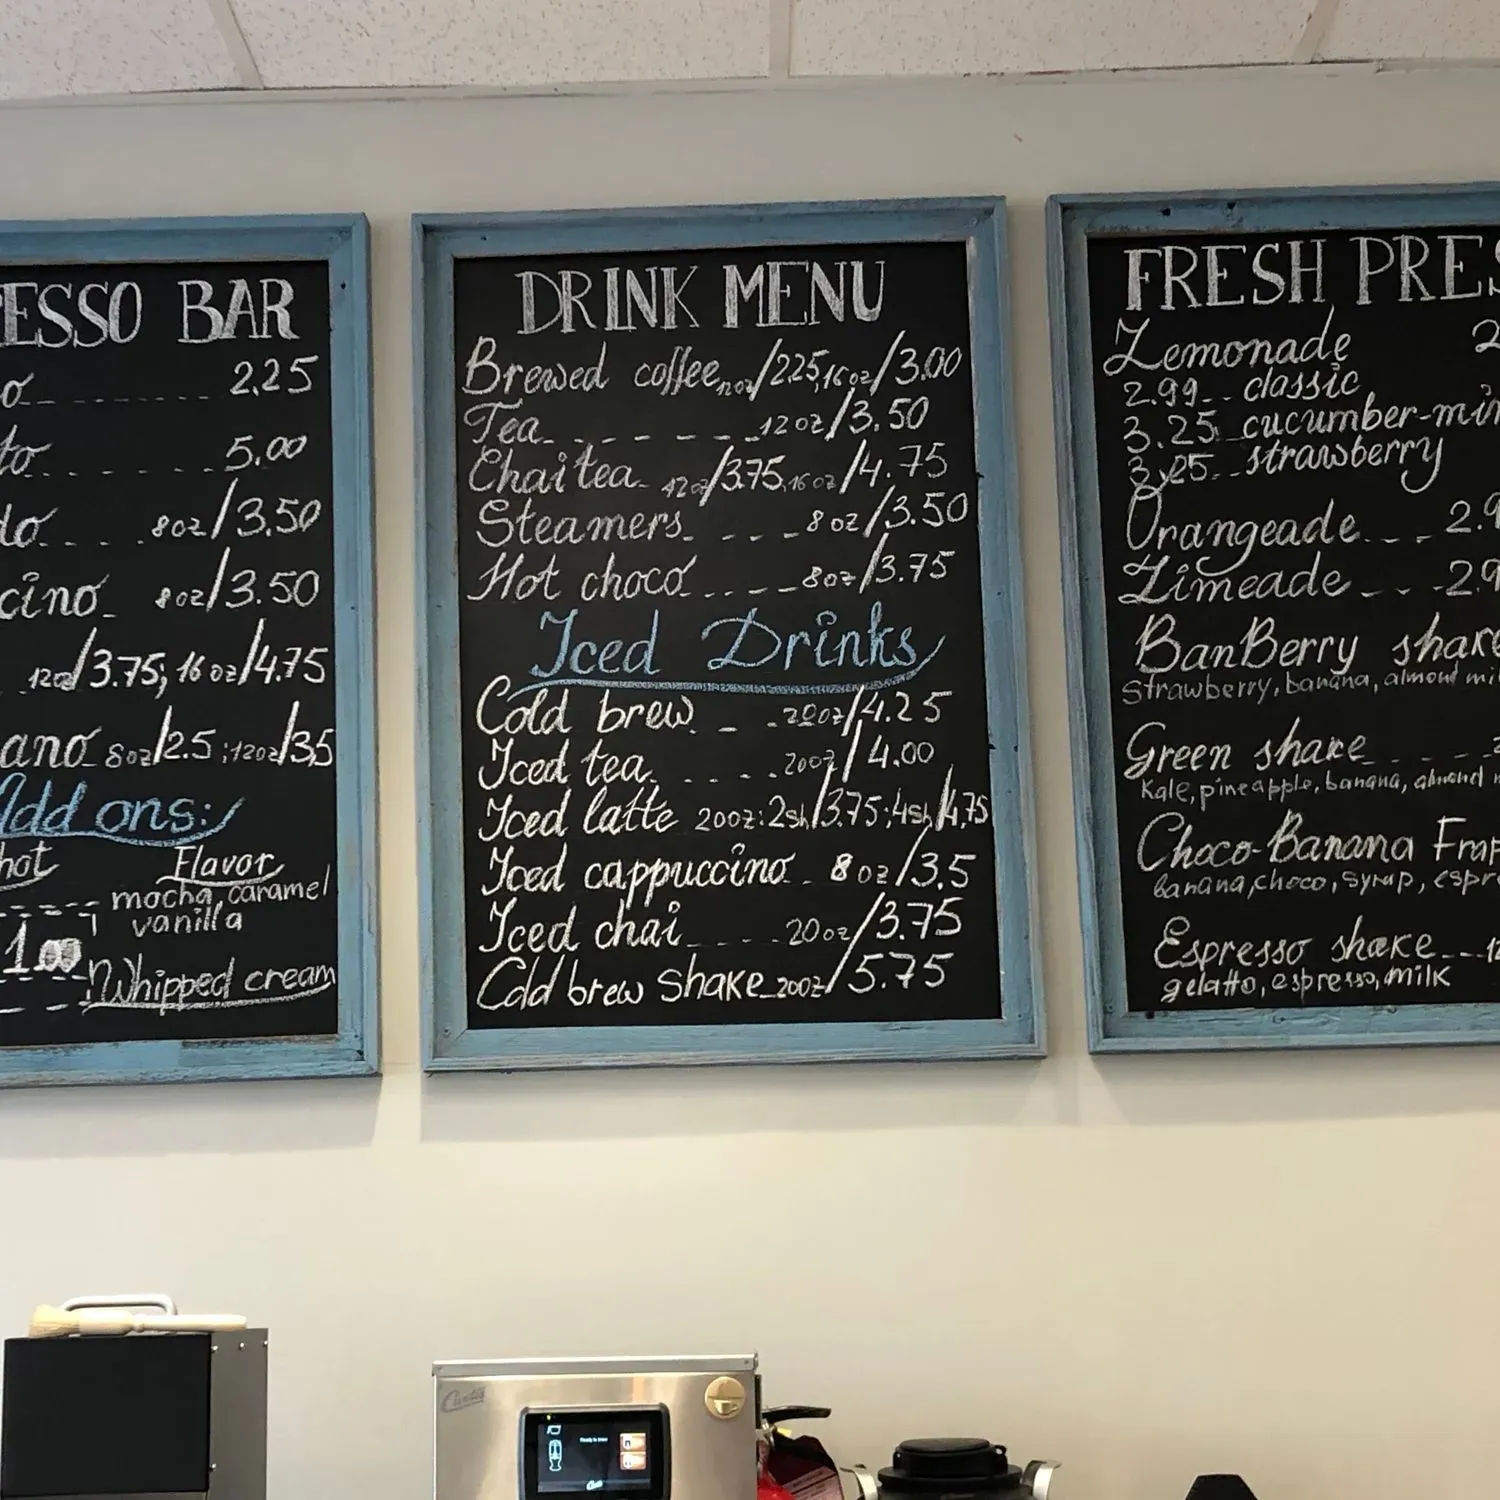 ESSO BAR
o 2.25
to 5.00
do 8oz/3.50
cino 8oz/3.50
12oz/3.75; 16oz/4.75
ano 8oz/2.5; 12oz/3,5
Add ons:
hot Flavor
mocha, caramel
vanilla
1.00
Whipped cream
DRINK MENU
Brewed coffee 12oz/2.25, 16oz/3.00
Tea 12oz/3.50
Chai tea 12oz/3.75, 16oz/4.75
Steamers 8oz/3.50
Hot choco 8oz/3.75
Iced Drinks
Cold brew 20oz/4.25
Iced tea 20oz/4.00
Iced latte 20oz: 2sh/3.75; 4sh/4,75
Iced cappuccino 8oz/3.5
Iced chai 20oz/3.75
Cold brew shake 20oz/5.75
FRESH PRES
Lemonade 2
2.99 classic
3.25 cucumber-min
3.25 strawberry
Orangeade 2.9
Limeade 2.9
BanBerry shake
Strawberry, banana, almond mil
Green shake
Kale, pineapple, banana, almond
Choco-Banana Frap
banana, choco, syrup, espre
Espresso shake 12
gelatto, espresso, milk
Curtis
Ready to brew